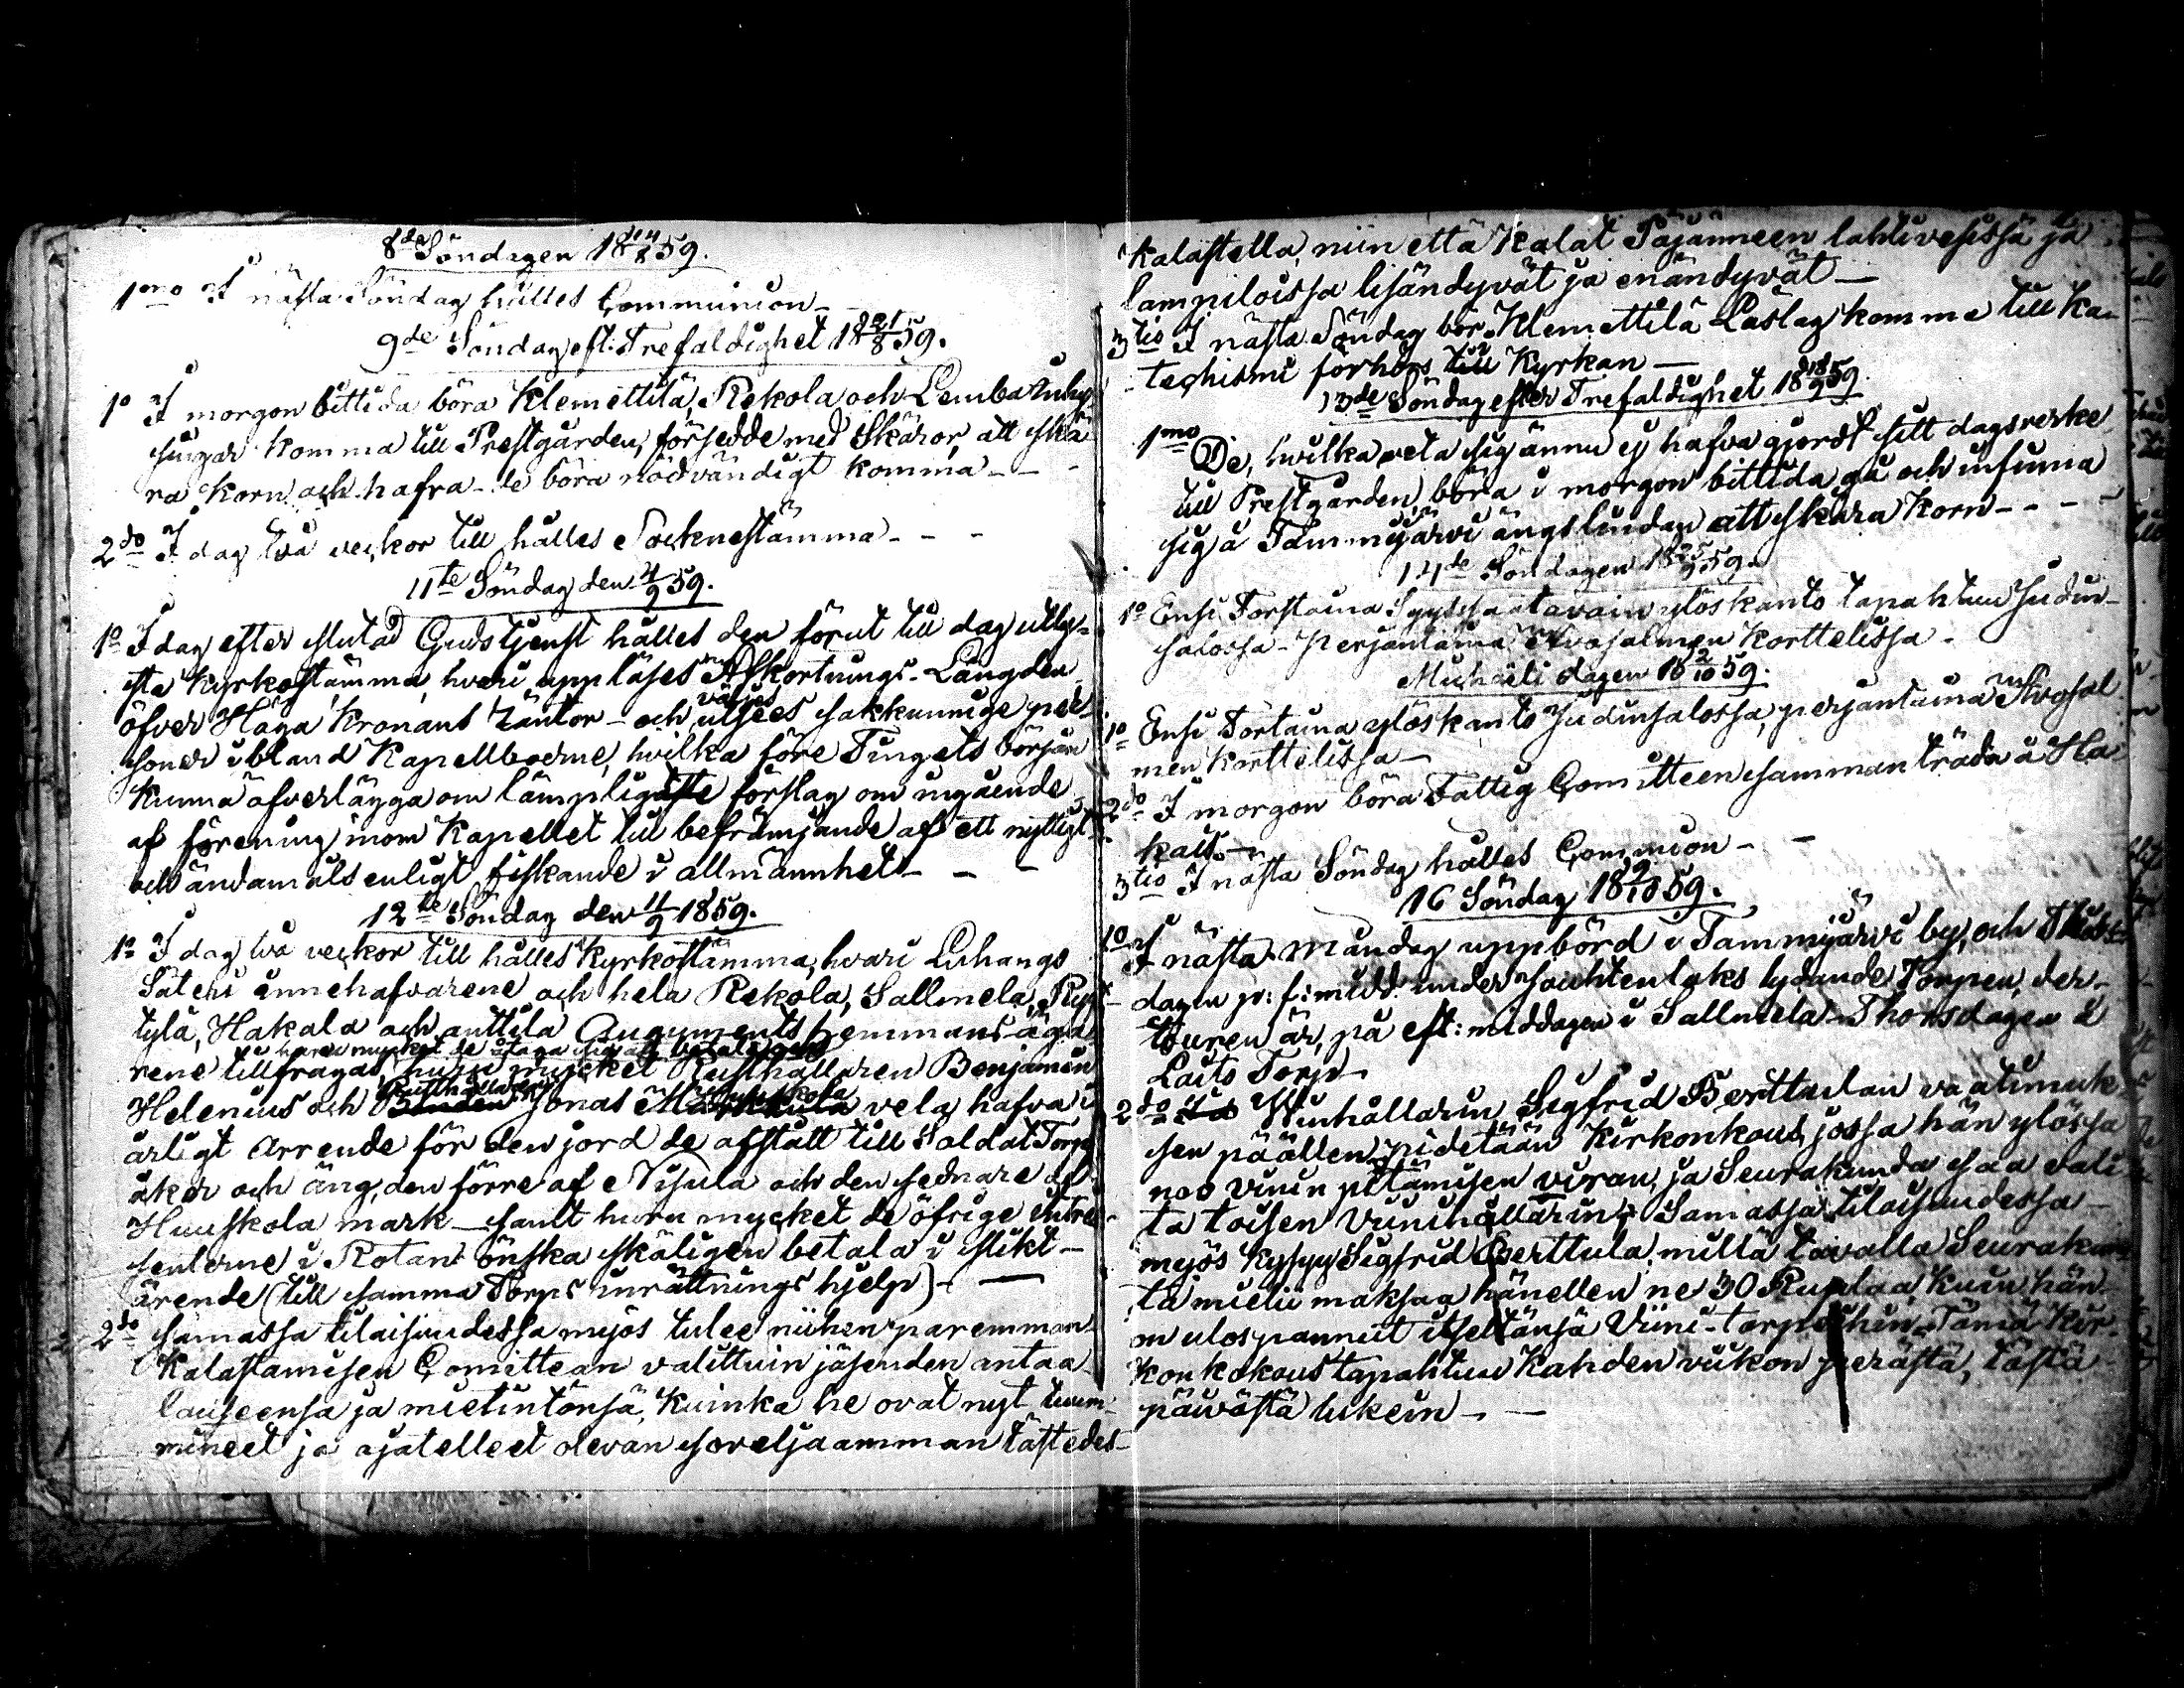 8de Söndagen 18 14/8 59.
1mo I nästa Söndag hålles Communion -
9de Söndag eft: Trefaldighet 18 21/8 59.
1o I morgon bittida böra Klemettilä, Rekola och Lemba
komma till Prestgården, försedde med Skäror, att skä
ra Korn och hafra - de böra nödvändigt komma - -
2do I dag två veckor till hålles Socknestämma - - -
11te Söndag den 4/9 59.
1o I dag efter slutad Gudstjenst hålles den förut till dag utly-
ste Kyrkostämma, hvari uppläses Afkortnings-Längden
öfver Höga Kronans Räntor - och väljes utsees sakkunnige per-
soner ibland Kapellboerne, hvilka före Tingets början
kunna öfverlägga om lämpligaste förslag om ingående
af förening inom Kapellet till befrämjande af ett nyttigt
och ändamåls enligt fiskande i allmännhet - - -
12te Söndag den 11/9 1859.
1o I dag två veckor till hålles Kyrkostämma, hvari Luhangs
Säteri innehafvarene och hela Rekola, Sallmela, Rys
tylä, Hakala och anttila Auguments hemmans äga
huru mycket de åtaga sig att betala
rene tillfrågas, huru mycket Rusthållaren Benjamin
Helenius och Bonden Rusthållaren Jonas Huuskola vela hafva i
årligt Arrende för den jord de afstått till Soldat Torp
åker och äng, den förre af Nisula och den sednare af
Huuskola mark - samt huru mycket de öfrige intres-
senterne i Rotan önska skäligen betala i slikt -
ärende (till samma Torps inrättnings hjelp) - -
2do samassa tilaisuudessa myös tulee niihen paremman
Kalastamisen Comittean valittuin jäsenden antaa
lauseensa ja mietintönsä, kuinka he ovat nyt tuum-
mineet ja ajatelleet olevan soveljaamman tästedes
kalastella, niin että Kalat Päjänneen lahtivesissä ja
lampiloissa lisändyvät ja enändyvät -
3tio I nästa Söndag bör Klemettilä Läslag komma till Ka-
techismi förhörs till Kyrkan -
13de Söndag efter Trefaldighet 18 18/9 59
1mo De, hvilka veta sig ännu ej hafva gjordt sitt dagsverke
till Prestgården, böra i morgon bittida gå och infinna
sig å Tammijärvi ängslindan att skära Korn - - -
14de Söndagen 18 25/9 59.
1o Ensi Torstaina Syyssaatavain ylöskanto tapahtuu Judin-
salossa - Perjantaina Avosalmen Korttelissa -
Michaeli dagen 18 2/10 59.
1o Ensi Tortaina ylöskanto Judinsalossa, perjantaina Avosal
men Korttelissa -
2do I morgon böra Fattig Comitteen samman träda å Ha-
kals -
3tio I nästa Söndag hålles Communion - -
16 Söndag 18 9/10 59.
1o I nästa Måndag uppbörd i Tammijärvi by, och
dagen p: f: midd. under Souhtenlaks lydande Torpen, der-
turen är, på eft: middagen i Sallmela - Thorsdagen i
Laits Torp -
2do Winhållarin Sigfrid Berttulan vaatimuk
sen päällen pidetään Kirkonkous, jossa hän ylössa
noo viinin pitämisen viran, ja Seurakunda saa vali
ta toisen Viinihållarin; Samassa tilaisuudessa
myös kysyy Sigfrid Berttula, millä tavalla Seurakun
ta mielii maksaa hänellen ne 30 Ruplaa, kuin hän
on ulospannut itsestänsä Viini-torpeihin. Tämä Kir-
kon kokous tapahtuu Kahden viikon perästä, tästä
päivästä lukein - -